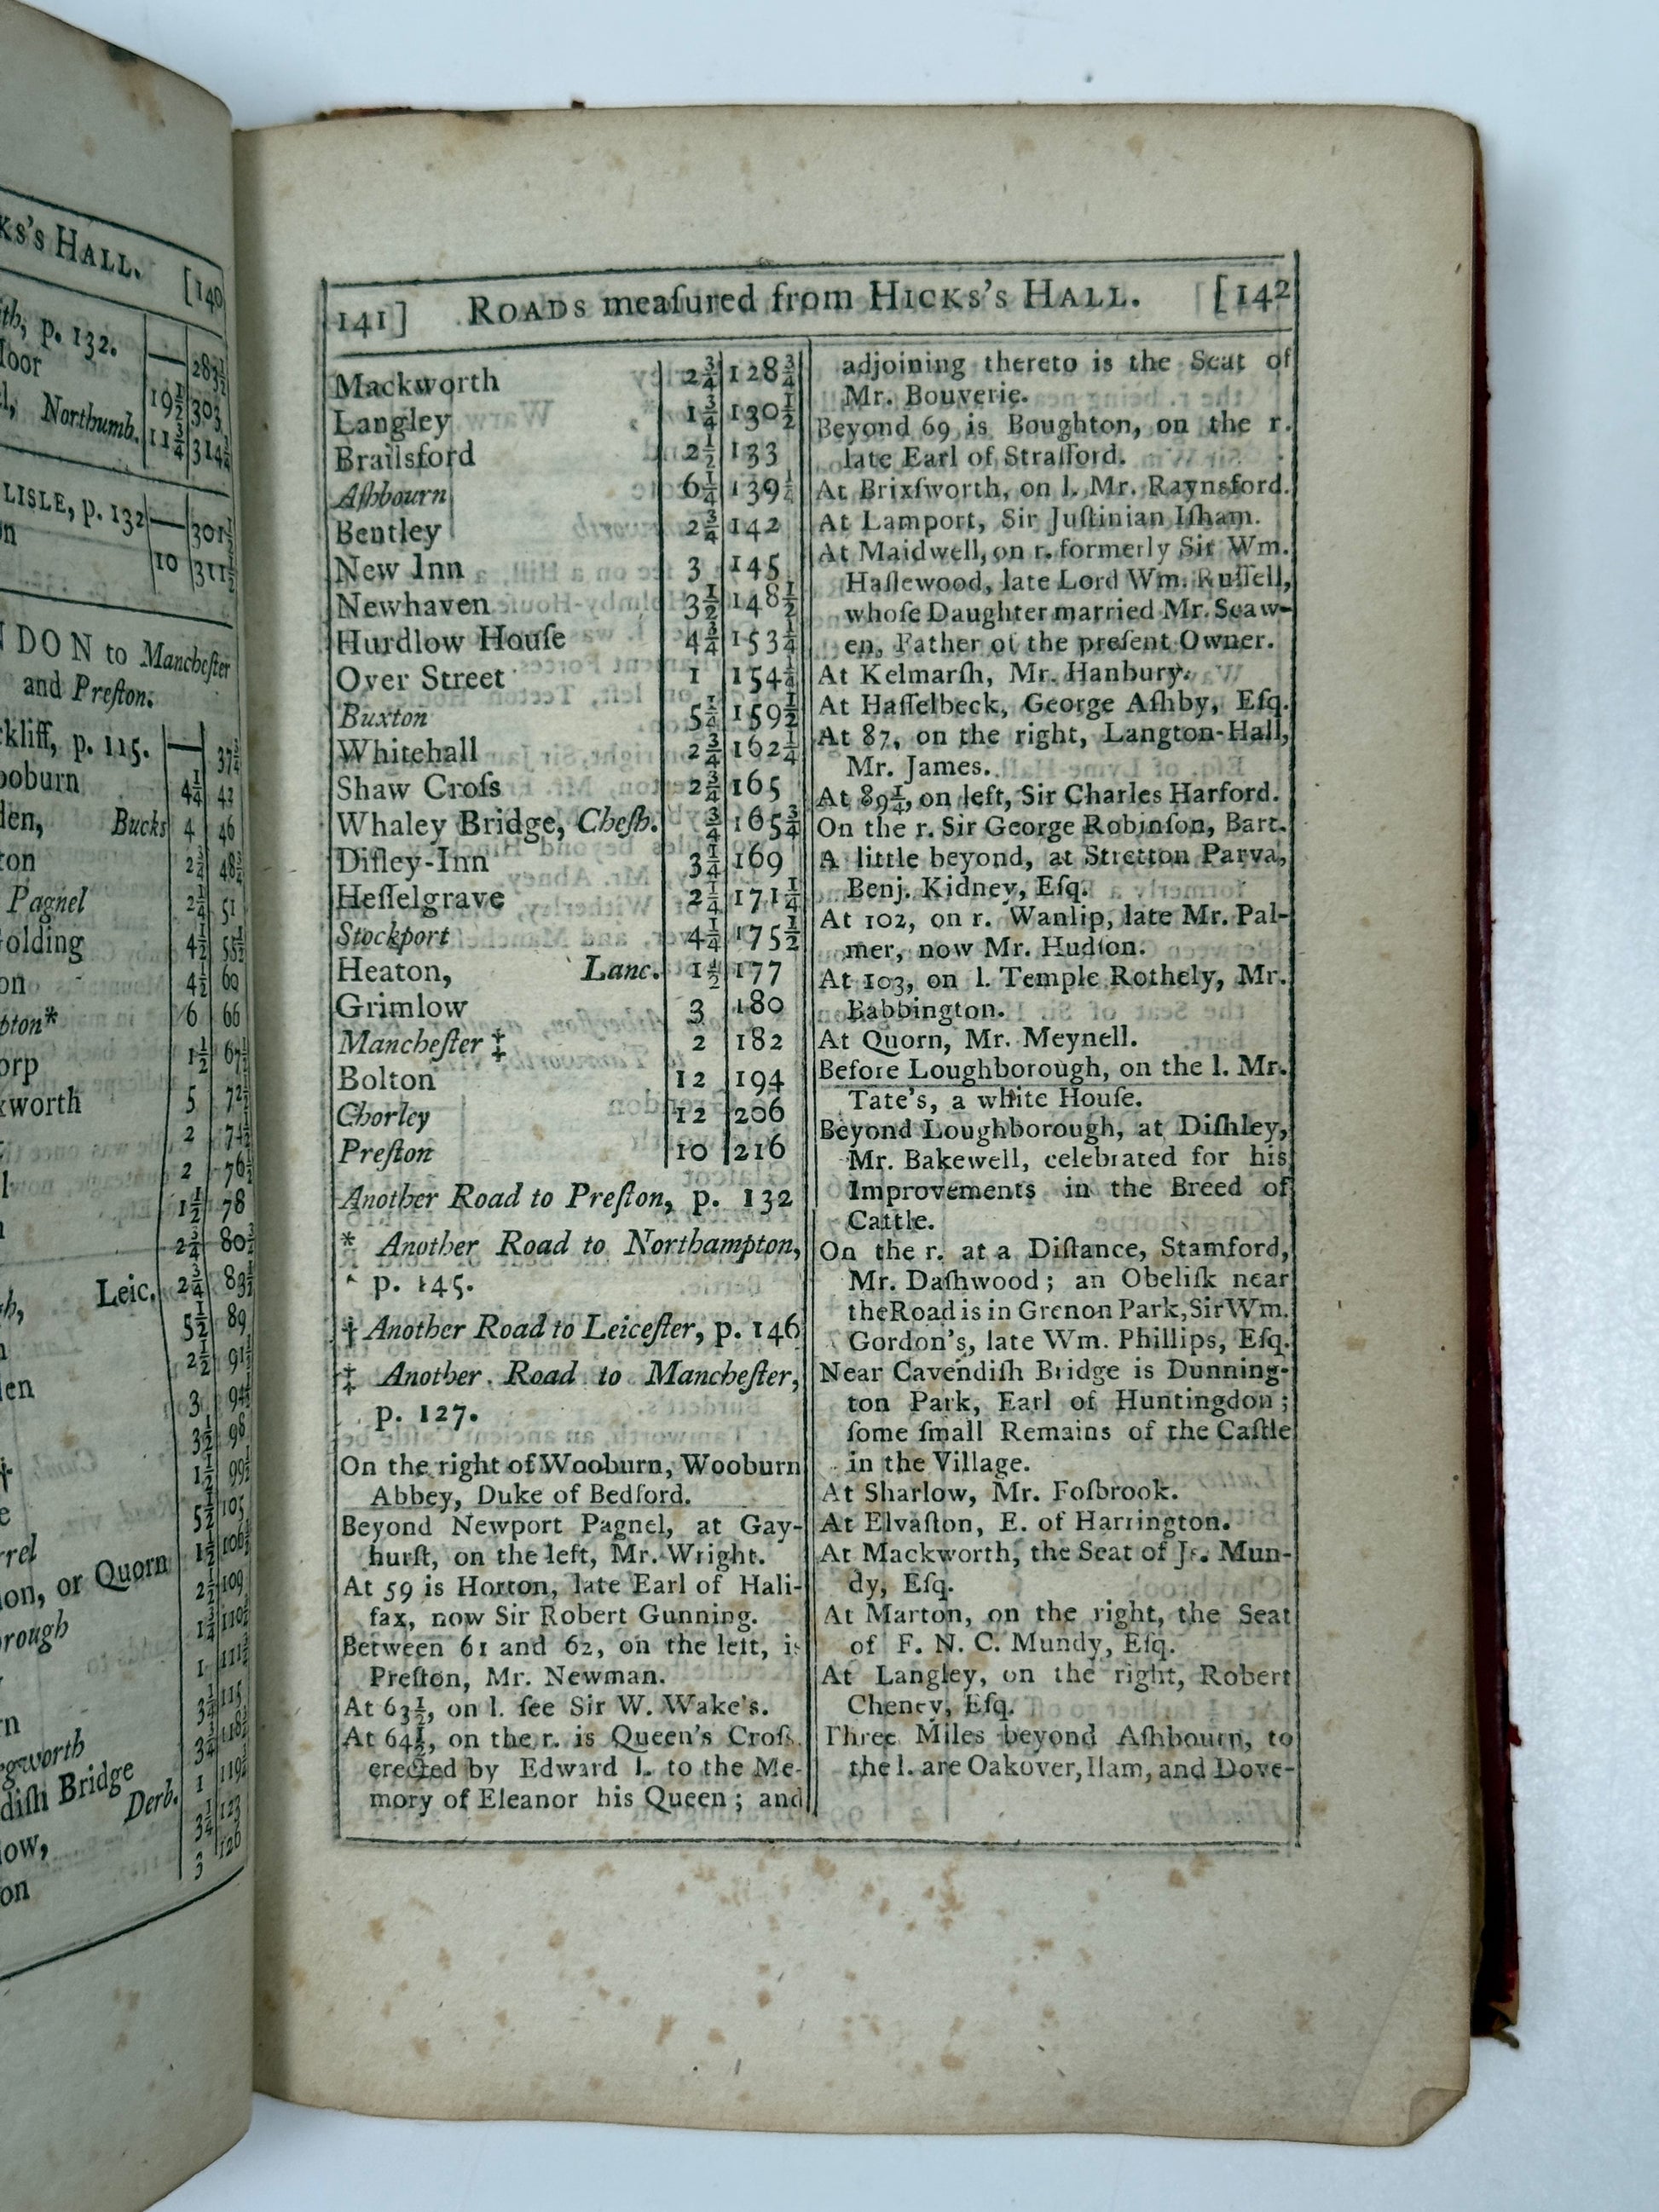 KS'S HALL. [140
th, p. 132. — 283½
loor 19½ 303
l, Northumb. 11¾ 314¾
LISLE, p. 132 — 301½
n 10 311½
NDON to Manchester
and Preston.
kliff, p. 115. — 37¾
ooburn 4¼ 42
den, Bucks 4 46
ton 2¾ 48¾
Pagnel 2¼ 51
olding 4½ 55½
on 4½ 60
pton* 6 66
orp 1½ 67½
xworth 5 72½
2 74½
l 2 76½
1½ 78
2¾ 80¾
h, Leic. 2¾ 83½
5½ 89
2½ 91½
en 3 94½
3½ 98
1½ 99½
e 5½ 105
rrel 1½ 106½
on, or Quorn 2½ 109
rough 1¾ 110¾
1 111¾
n 3¼ 115
gworth 3¾ 118¾
diſh Bridge 1 119¾
ow, Derb. 3¼ 123
on 3 126
141] ROADS meaſured from HICKS'S HALL. [142
Mackworth 2¾ 128¾
Langley 1¾ 130½
Brailsford 2½ 133
Aſhbourn 6¼ 139¼
Bentley 2¾ 142
New Inn 3 145
Newhaven 3½ 148½
Hurdlow Houſe 4¾ 153¼
Over Street 1 154¼
Buxton 5¼ 159½
Whitehall 2¾ 162¼
Shaw Croſs 2¾ 165
Whaley Bridge, Cheſh. ¾ 165¾
Diſley-Inn 3¼ 169
Heſſelgrave 2¼ 171¼
Stockport 4¼ 175½
Heaton, Lanc. 1½ 177
Grimlow 3 180
Mancheſter ‡ 2 182
Bolton 12 194
Chorley 12 206
Preſton 10 216
Another Road to Preſton, p. 132
* Another Road to Northampton,
p. 145.
† Another Road to Leiceſter, p. 146
‡ Another Road to Mancheſter,
p. 127.
On the right of Wooburn, Wooburn
Abbey, Duke of Bedford.
Beyond Newport Pagnel, at Gay-
hurſt, on the left, Mr. Wright.
At 59 is Horton, late Earl of Hali-
fax, now Sir Robert Gunning.
Between 61 and 62, on the left, is
Preſton, Mr. Newman.
At 63½, on l. ſee Sir W. Wake's.
At 64½, on the r. is Queen's Croſs,
erected by Edward I. to the Me-
mory of Eleanor his Queen; and
adjoining thereto is the Seat of
Mr. Bouverie.
Beyond 69 is Boughton, on the r.
late Earl of Strafford.
At Brixſworth, on l. Mr. Raynsford.
At Lamport, Sir Juſtinian Iſham.
At Maidwell, on r. formerly Sir Wm.
Haſlewood, late Lord Wm. Ruſſell,
whoſe Daughter married Mr. Scaw-
en, Father of the preſent Owner.
At Kelmarſh, Mr. Hanbury.
At Haſſelbeck, George Aſhby, Eſq.
At 87, on the right, Langton-Hall,
Mr. James.
At 89¼, on left, Sir Charles Harford.
On the r. Sir George Robinſon, Bart.
A little beyond, at Stretton Parva,
Benj. Kidney, Eſq.
At 102, on r. Wanlip, late Mr. Pal-
mer, now Mr. Hudſon.
At 103, on l. Temple Rothely, Mr.
Babbington.
At Quorn, Mr. Meynell.
Before Loughborough, on the l. Mr.
Tate's, a white Houſe.
Beyond Loughborough, at Diſhley,
Mr. Bakewell, celebrated for his
Improvements in the Breed of
Cattle.
On the r. at a Diſtance, Stamford,
Mr. Daſhwood; an Obeliſk near
the Road is in Grenon Park, Sir Wm.
Gordon's, late Wm. Phillips, Eſq.
Near Cavendiſh Bridge is Dunning-
ton Park, Earl of Huntingdon;
ſome ſmall Remains of the Caſtle
in the Village.
At Sharlow, Mr. Foſbrook.
At Elvaſton, E. of Harrington.
At Mackworth, the Seat of Mun-
dy, Eſq.
At Marton, on the right, the Seat
of F. N. C. Mundy, Eſq.
At Langley, on the right, Robert
Cheney, Eſq.
Three Miles beyond Aſhbourn, to
the l. are Oakover, Ilam, and Dove-